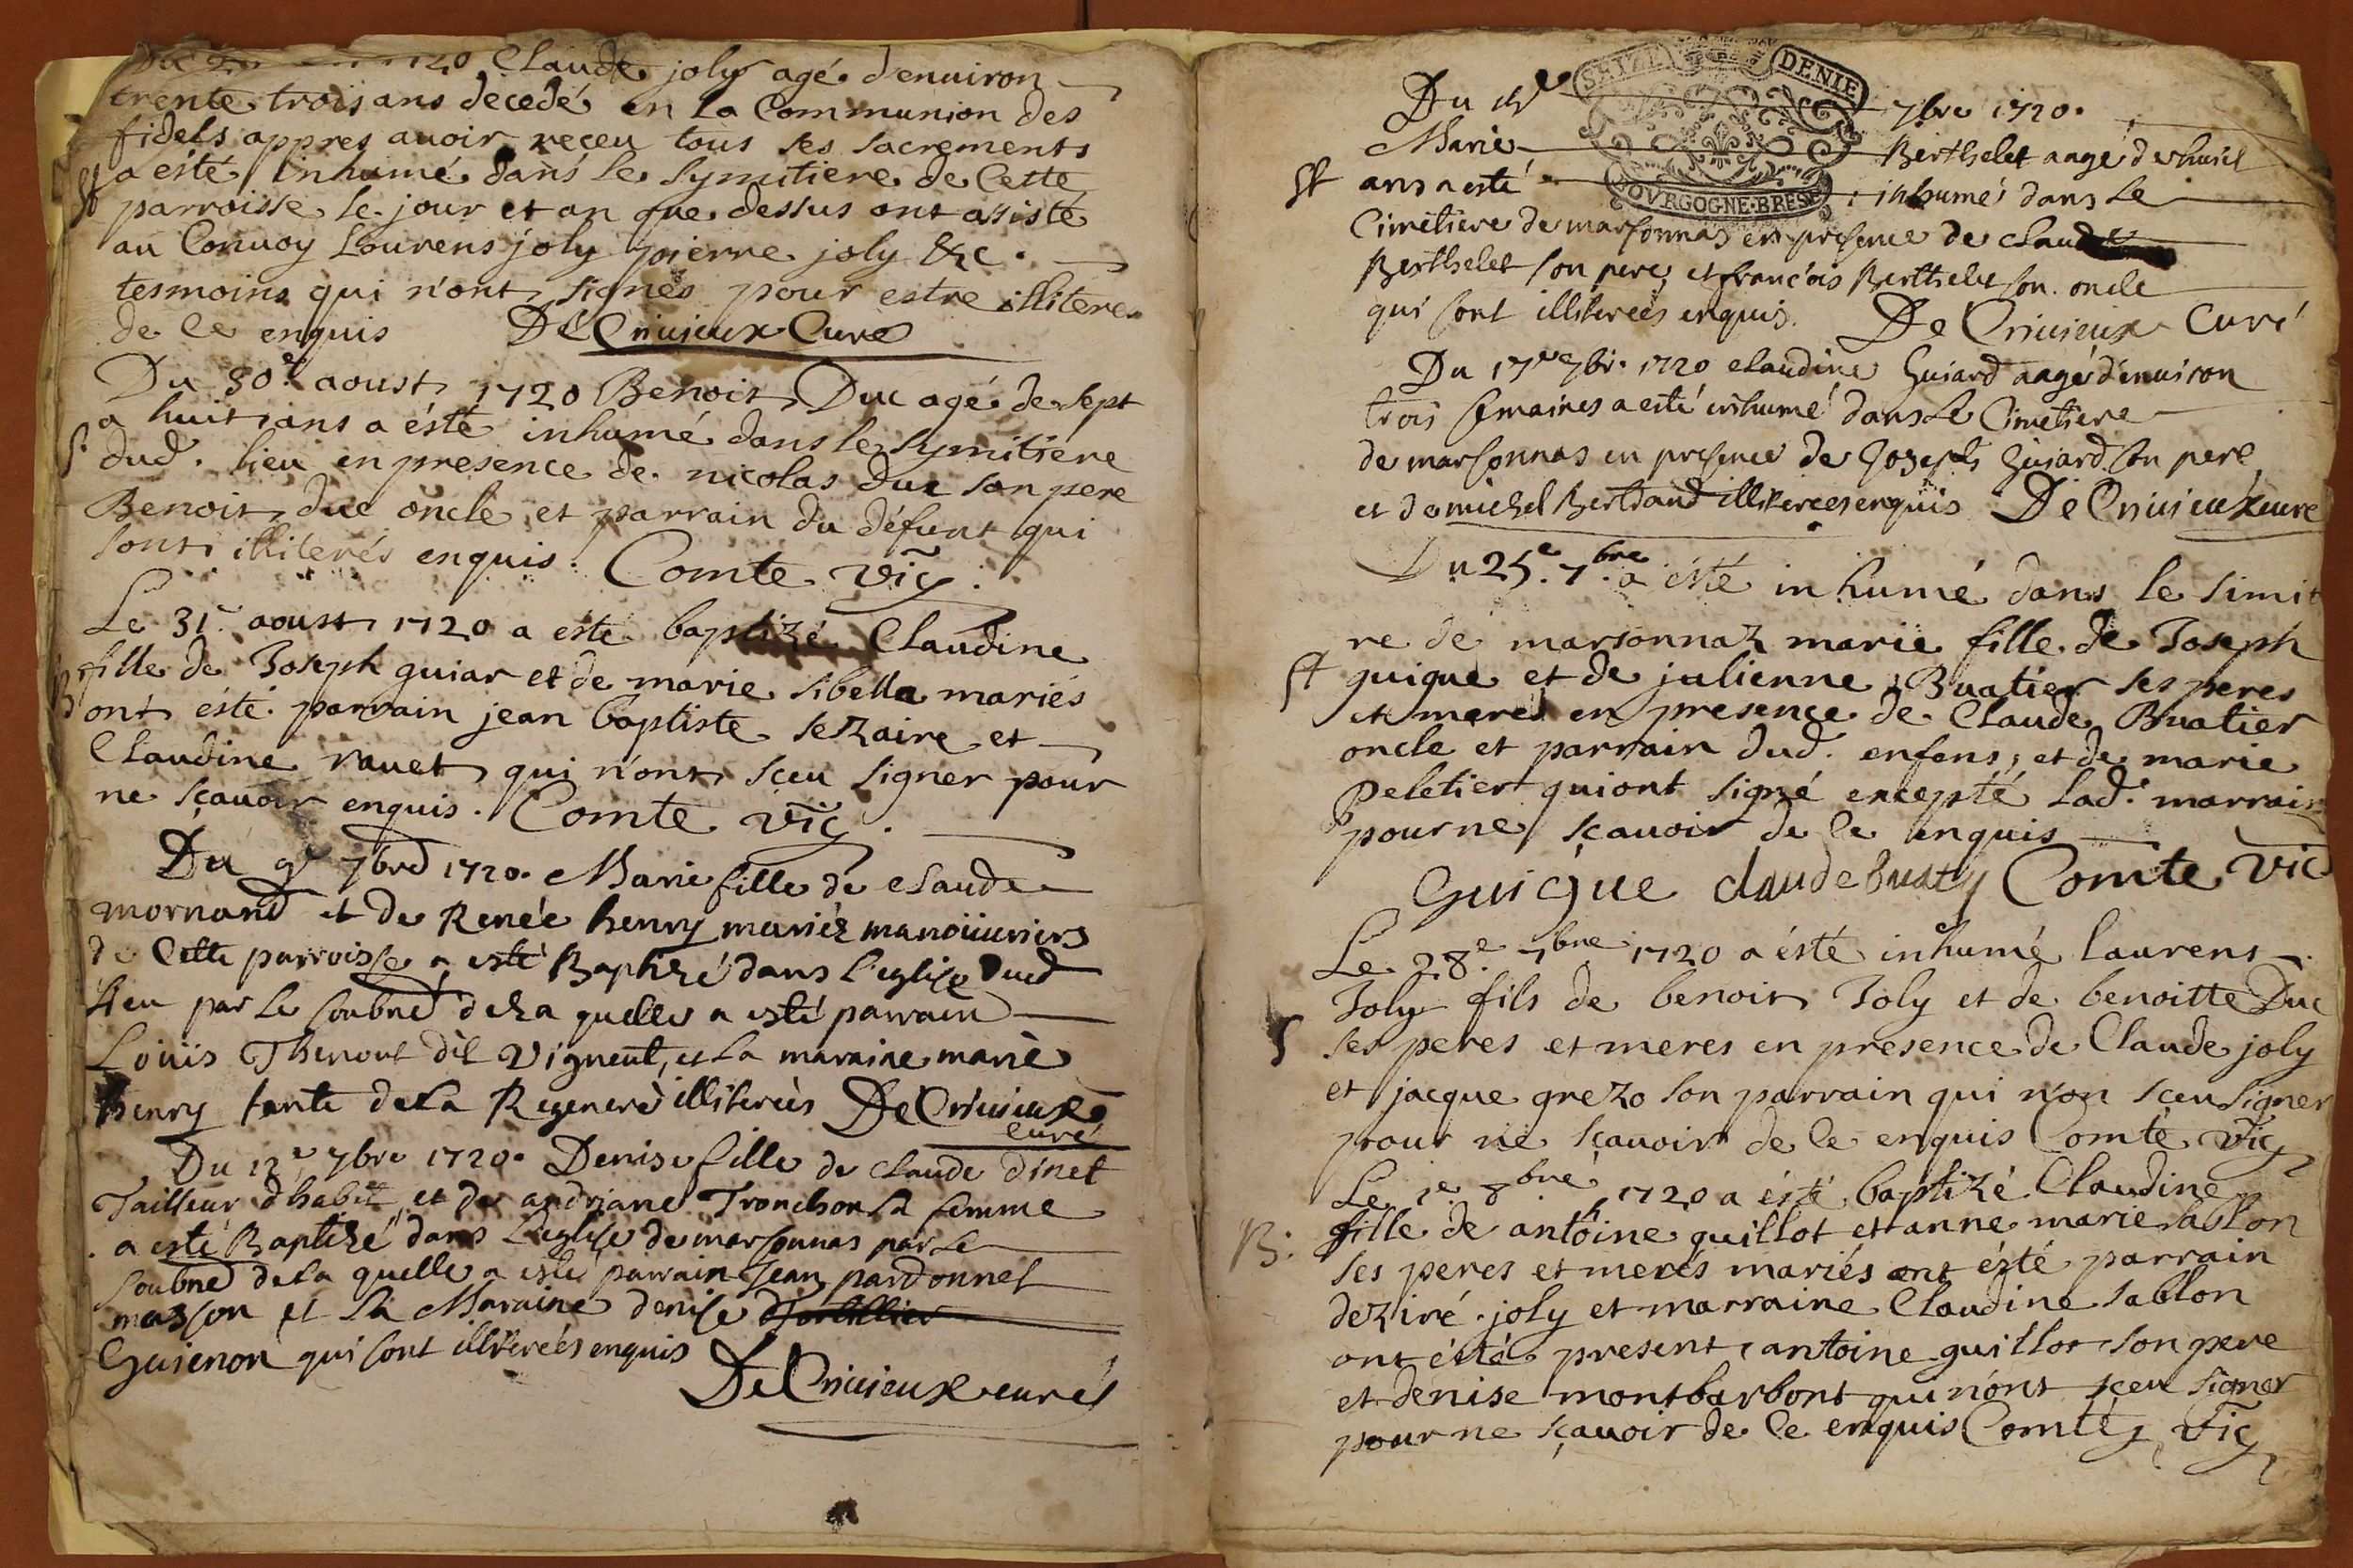 1720 Claude joly agé denuiron
trente trois ans decedé en la Communion des
fidels appres auoir reçeu tous ses sacrements
St a éste inhumé dans le symitiere de Cette
parroisse le jour et an que dessus ont assisté
au Conuoy Lourens joly pierre joly &c.
tesmoins qui n'ont signés pour estre illitere
de ce enquis De Criuieux Curé
Du 30e aoust 1720 Benoit Duc agé de sept
a huit ans a ésté inhumé dans le symitiere
S dud. lieu en presence de nicolas duc son pere
Benoit duc oncle et parrain du défunt qui
sont illiterés enquis. Comte vic
Le 31e aoust 1720 a este baptizé Claudine
fille de Joseph guiar et de marie sibella mariés
B ont ésté parrain jean baptiste sezaire et
Claudine rauet qui n'ont sceu signer pour
ne sçauoir enquis. Comte vic
Du 9e 7bre 1720. Marie fille de claude
mornand et de Renée henry mariéz manoüuriers
de Cette parroisse a esté Baptizé dans l'eglise dud
lieu par le soubné de la quelle a esté parrain
Loüis Thenout dit Vigneul, et la maraine marie
henry tante de la Regeneré illiterées De Criuieux
curé
Du 12e 7bre 1720. Denise fille de claude dinet
Tailleur dhabit et de andriane Tronchon sa femme
a esté Baptizé dans l'eglise de marsonnas par le
soubné de la quelle a esté parrain Jean pardonnet
masson et la Maraine denise
Guienon qui sont illiterées enquis
De Criuieux curé
SEIZE DENIE
BOVRGOGNE·BRESSE
Du 7bre 1720.
Marie Berthelet aagé de huict
St ans a esté inhumé dans le
Cimetiere de marsonnas en presence de claude
Berthelet son pere, et francois Berthelet son oncle
qui sont illiterées enquis. De Criuieux Curé
Du 17e 7br. 1720 claudine Guiard aagé denuiron
trois semaines a esté inhumé dans le Cimetiere
de marsonnas en presence de Joseph Guiard son pere
et de michel Bertrand illiterées enquis De Criuieux curé
Du 25e. 7bre a ésté inhumé dans le simit
re de marsonnaz marie fille de Joseph
St guigue et de julienne Buatier ses peres
et meres en presence de Claude Buatier
oncle et parrain dud. enfens, et de marie
Peletier qui ont signé excepté lad. marrain
pour ne sçauoir de ce enquis
Guigue claude buaty Comte vic
Le 28e 7bre 1720 a ésté inhumé laurens
Joly fils de benoit Joly et de benoitte Duc
S ses peres et meres en presence de Claude joly
et jacque grezo son parrain qui n'on sceu signer
pour ne sçauoir de ce enquis Comte vic
Le 1e 8bre 1720 a ésté baptizé Claudine
B. fille de antoine guillot et anne marie sablon
ses peres et meres mariés ont ésté parrain
deziré joly et marraine Claudine sablon
ont ésté present antoine guillot son pere
et denise montbarbont qui n'ont sceu signer
pour ne sçauoir de ce enquis Comte vic